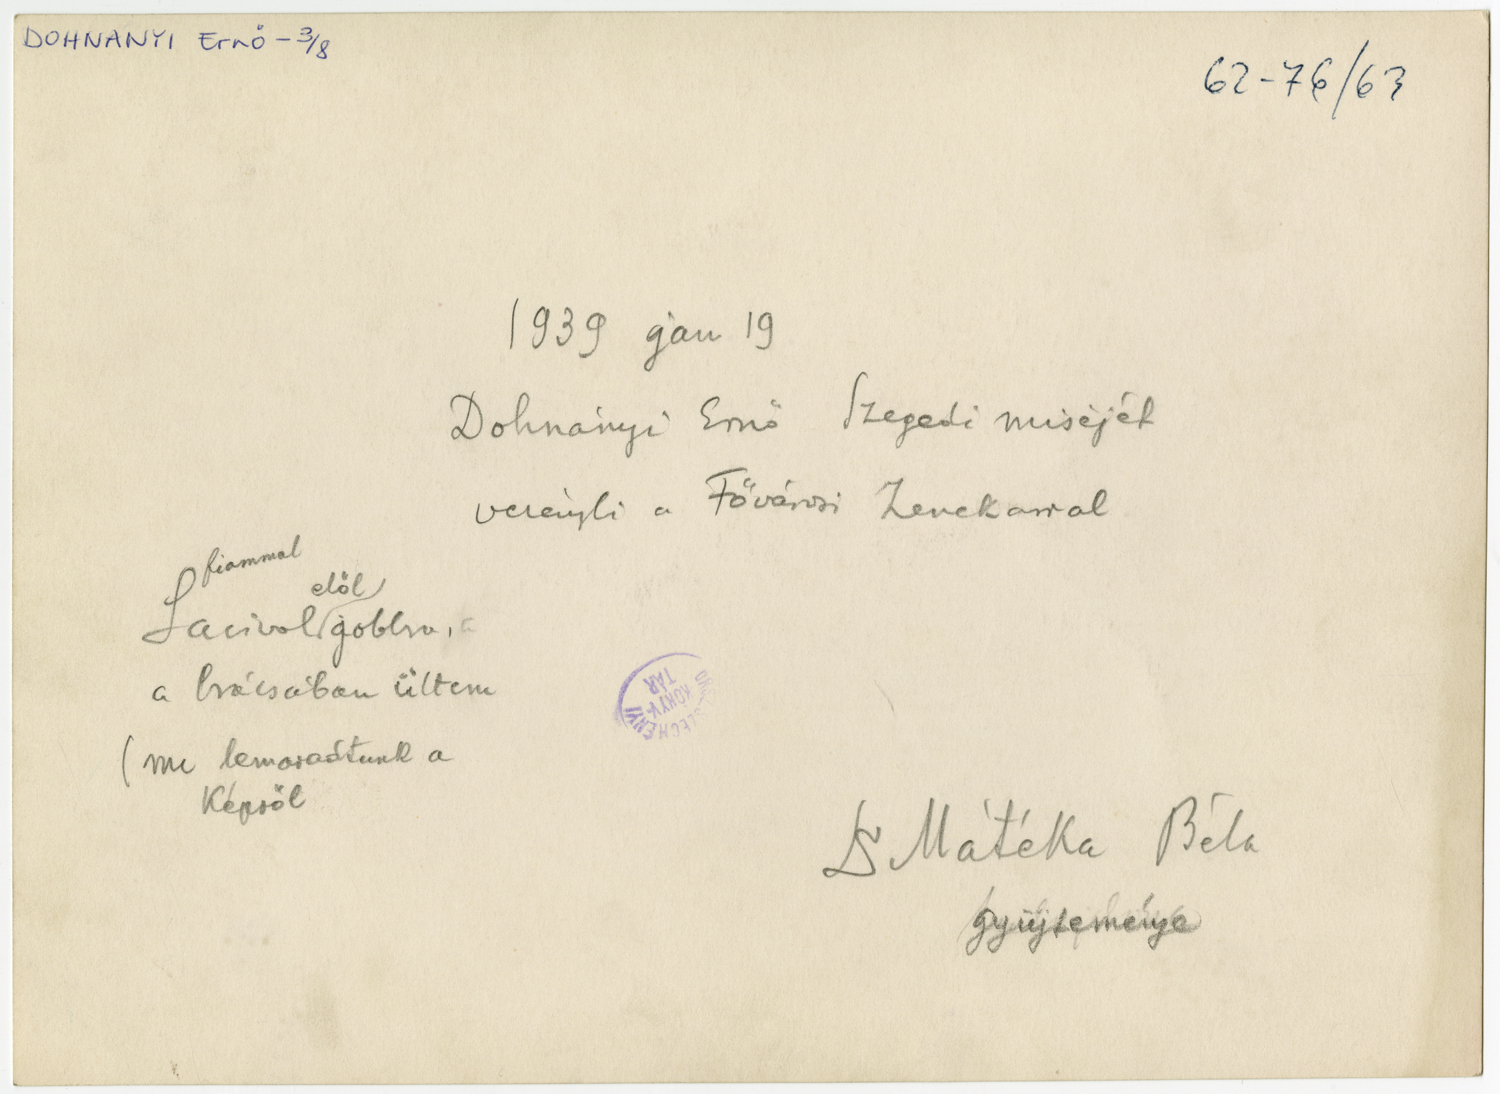 DOHNANYI Ernő - 3/8
62-76/63
1939 jan 19
Dohnányi Ernő Szegedi miséjét
vezényli a Fővárosi Zenekarral
fiammal
elöl
Lacival jobbra, a
a brácsában ültem
(mi lemaradtunk a
képről
SZÉCHÉNYI
KÖNYV-
TÁR
Dr Mátéka Béla
gyűjteménye